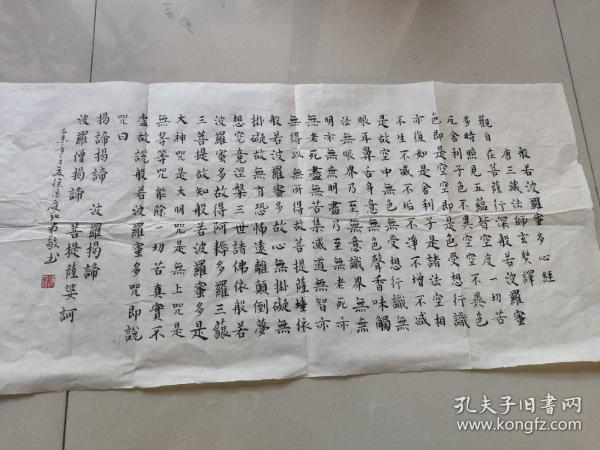 般若波羅蜜多心經
唐三藏法師玄奘譯
觀自在菩薩行深般若波羅蜜
多時照見五蘊皆空度一切苦
厄舍利子色不異空空不異色
色即是空空即是色受想行識
亦復如是舍利子是諸法空相
不生不滅不垢不淨不增不減
是故空中無色無受想行識無
眼耳鼻舌身意無色聲香味觸
法無眼界乃至無意識界無無
明亦無無明盡乃至無老死亦
無老死盡無苦集滅道無智亦
無得以無所得故菩提薩埵依
般若波羅蜜多故心無掛礙無
掛礙故無有恐怖遠離顛倒夢
想究竟涅槃三世諸佛依般若
波羅蜜多故得阿耨多羅三藐
三菩提故知般若波羅蜜多是
大神咒是大明咒是無上咒是
無等等咒能除一切苦真實不
虛故說般若波羅蜜多咒即說
咒曰
揭諦揭諦 波羅揭諦
波羅僧揭諦 菩提薩婆訶
孔夫子旧书网
www.kongfz.com